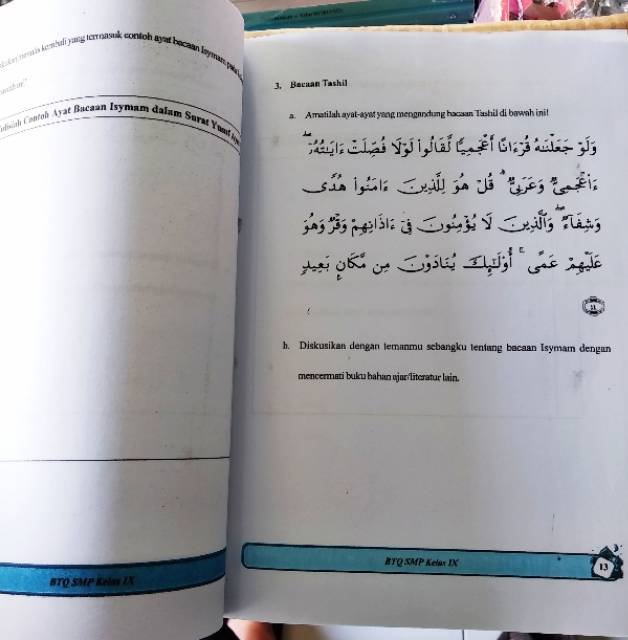 menulis kembali yang termasuk contoh ayat bacaan Isymam pada
Contoh Ayat Bacaan Isymam dalam Surat Yusuf
BTQ SMP Kelas IX
3. Bacaan Tashil
a. Amatilah ayat-ayat yang mengandung bacaan Tashil di bawah ini!
وَلَوْ جَعَلْنَٰهُ قُرْءَانًا أَعْجَمِيًّا لَّقَالُوا۟ لَوْلَا فُصِّلَتْ ءَايَٰتُهُۥٓ
ءَا۬عْجَمِىٌّ وَعَرَبِىٌّ ۗ قُلْ هُوَ لِلَّذِينَ ءَامَنُوا۟ هُدًى
وَشِفَآءٌ ۖ وَٱلَّذِينَ لَا يُؤْمِنُونَ فِىٓ ءَاذَانِهِمْ وَقْرٌ وَهُوَ
عَلَيْهِمْ عَمًى ۚ أُو۟لَٰٓئِكَ يُنَادَوْنَ مِن مَّكَانٍۭ بَعِيدٍ
b. Diskusikan dengan temanmu sebangku tentang bacaan Isymam dengan
mencermati buku bahan ajar/literatur lain.
BTQ SMP Kelas IX
13